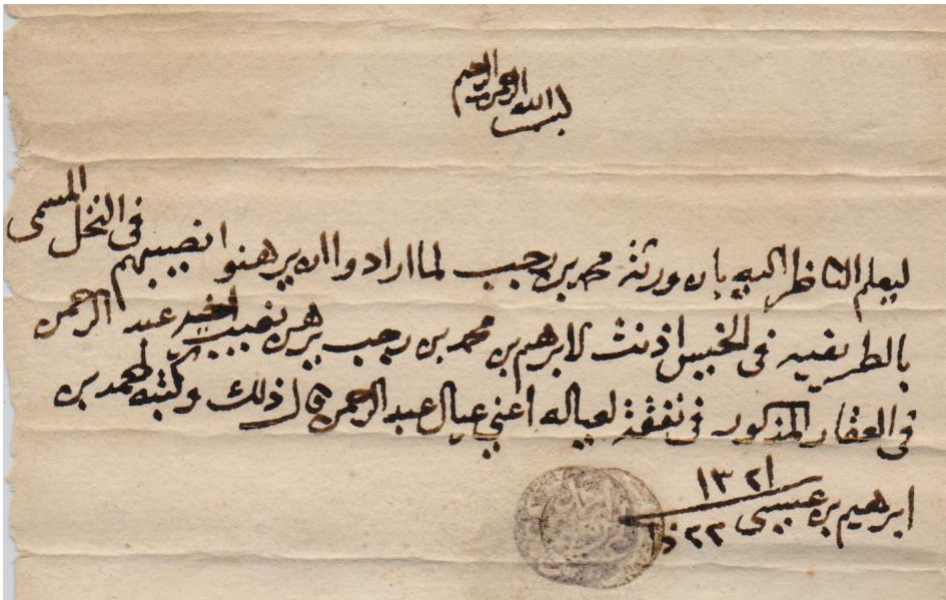 بسم الله الرحمن الرحيم
ليعلم الناظر اليه بان ورثة محمد بن رجب لما ارادوا ان يرهنوا نصيبهم في النخل المسمى
بالطريفيه في الخبيس اذنت لابرهيم بن محمد بن رجب يرهن نصيب اخيه عبد الرحمن
في العقار المذكور في نفقة لعياله اعني عيال عبد الرحمن قال ذلك وكتبه احمد بن
ابرهيم بن عيسى ٢٢ ذا ١٣٢١